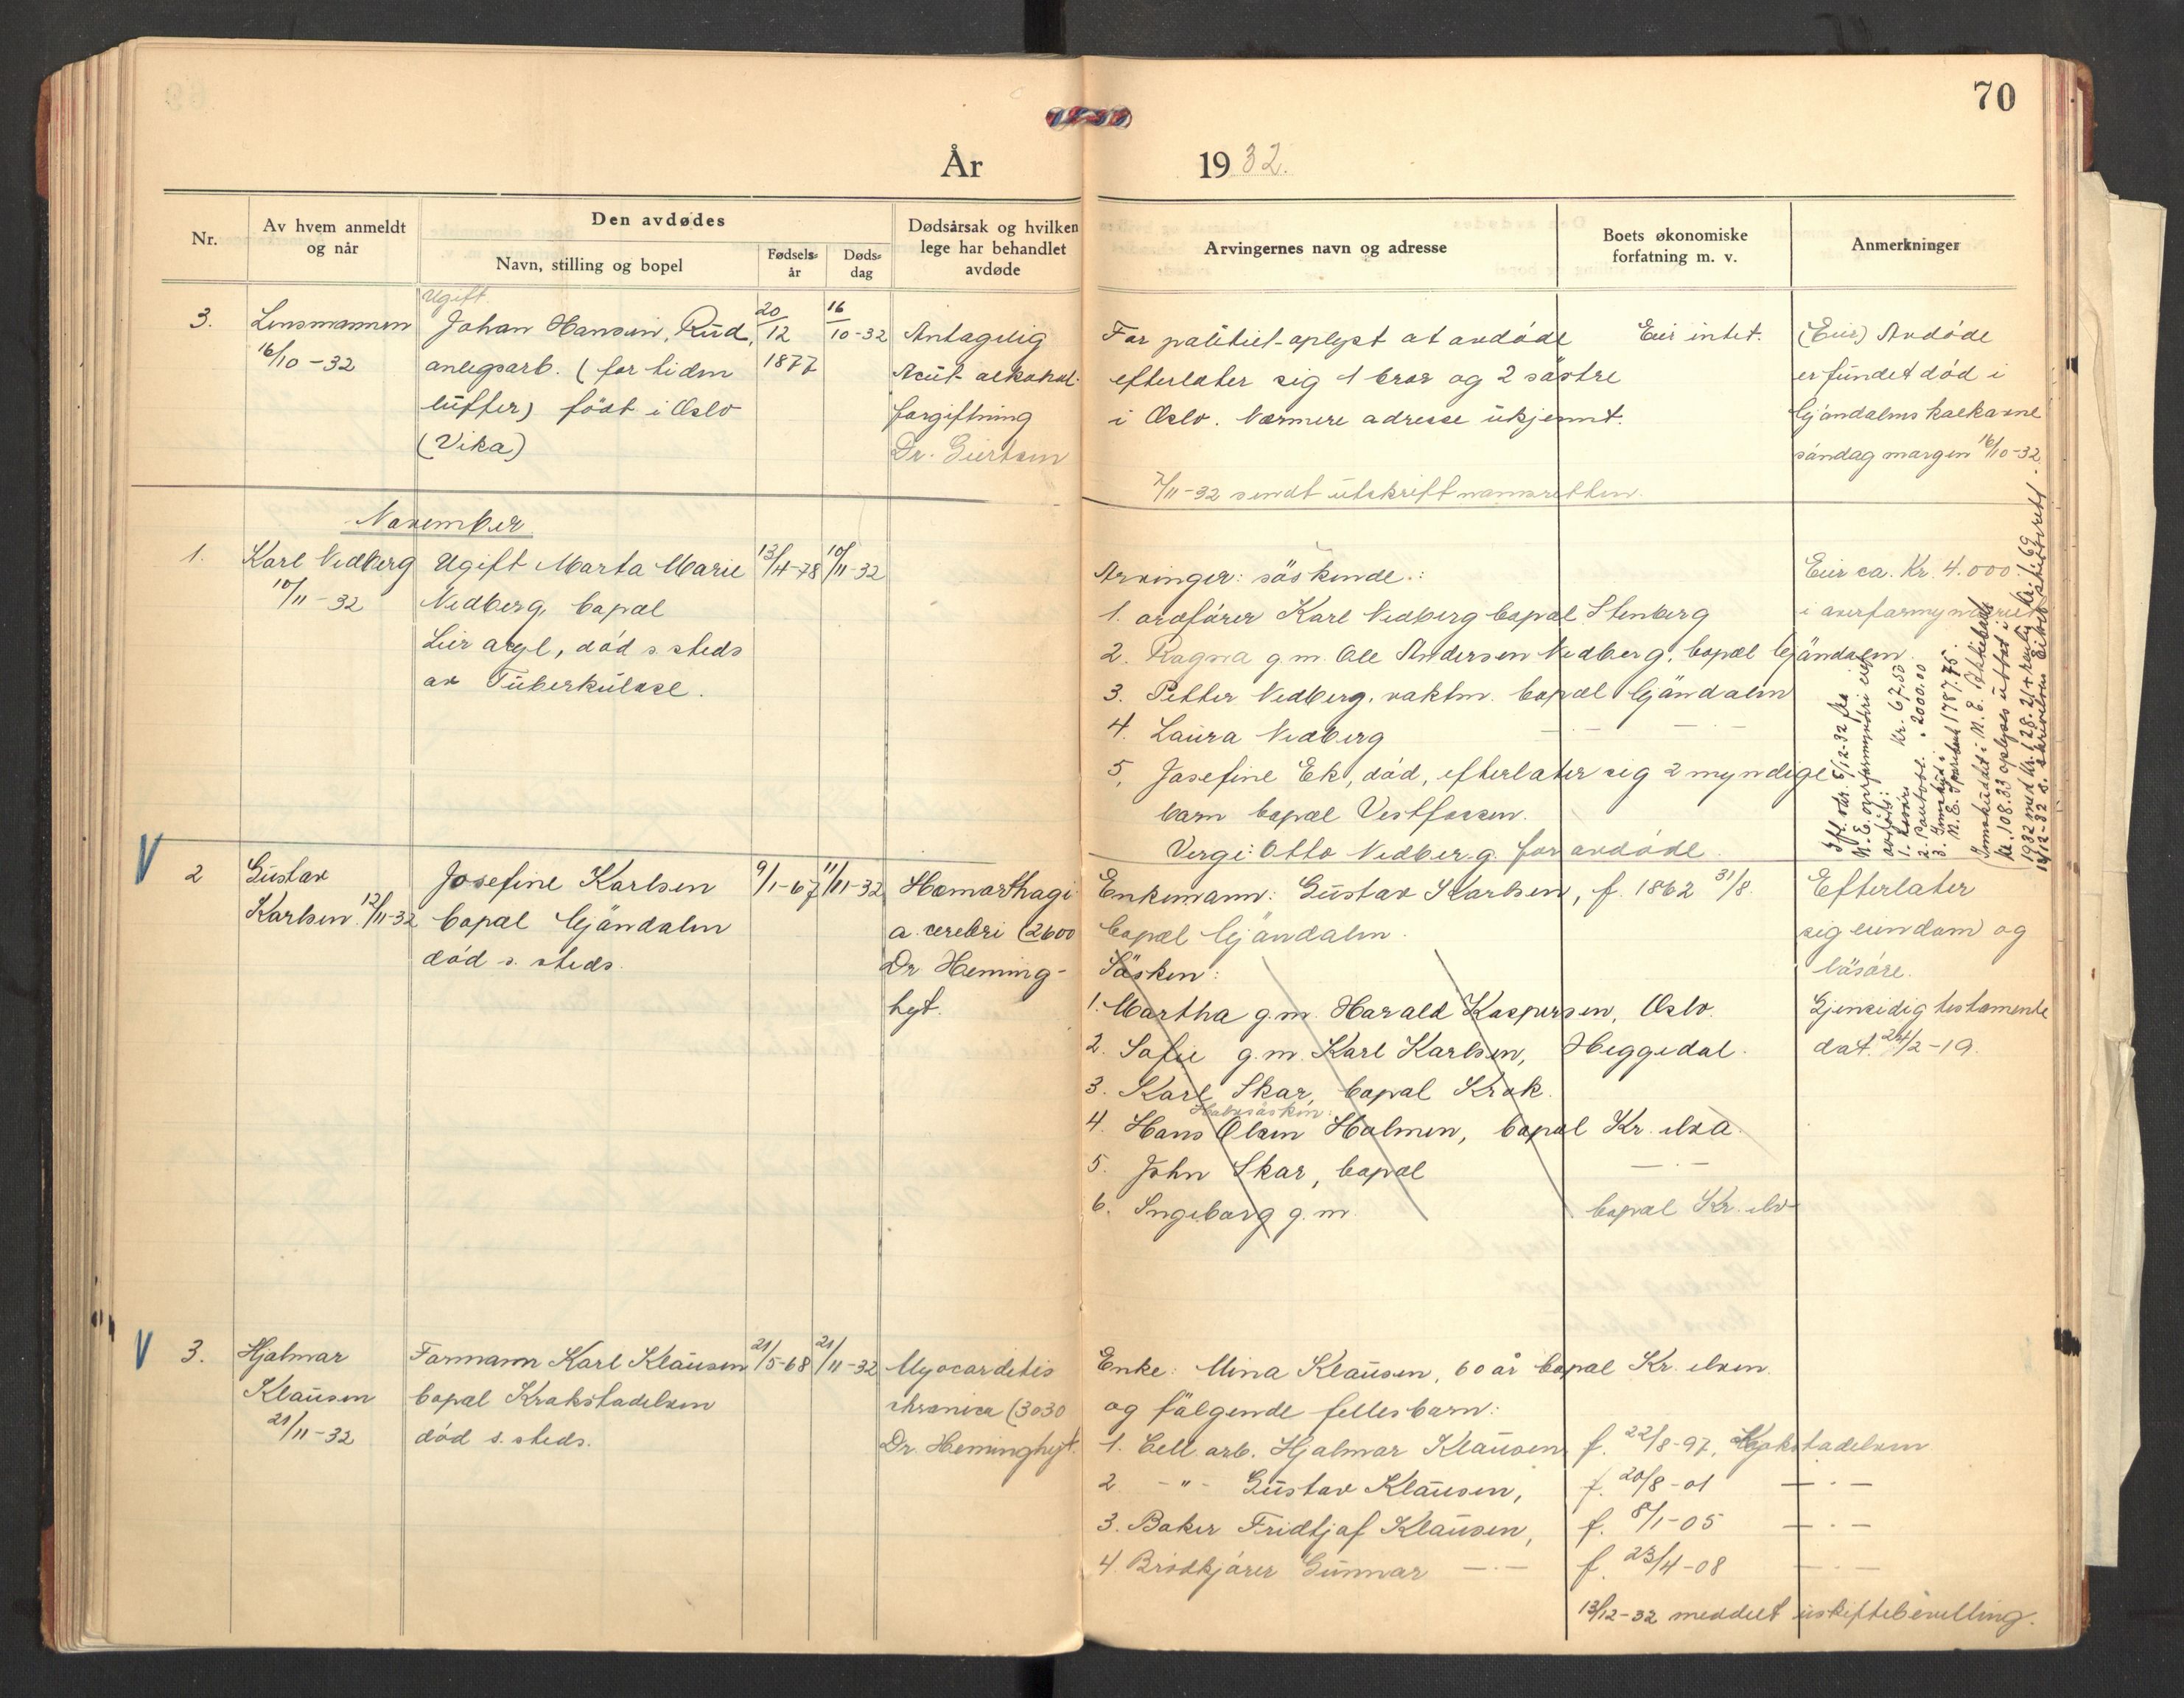 70
År 1932.
Nr.
Av hvem anmeldt og når
Den avdødes
Navn, stilling og bopel
Fødsels-år
Døds-dag
Dødsårsak og hvilken lege har behandlet avdøde
Arvingernes navn og adresse
Boets økonomiske forfatning m. v.
Anmerkninger
3.
Lensmannen
16/10-32
Ugift.
Johan Hansen, Rud,
anlegsarb. (for tiden
lufter) födt i Oslo
(Vika)
20/12
1877
16/10-32
Antagelig
Acut alkohol.
forgiftning
Dr. Giertsen
For politiet oplyst at avdöde
efterlater sig 1 bror og 2 söstre
i Oslo. Nærmere adresse ukjennt.
7/11-32 sendt utskrift namsretten.
Eier intet.
(Eier) Avdöde
er fundet död i
Gjöndalens kalkovne
söndag morgen 16/10-32.
November
1.
Karl Nedberg
10/11-32
Ugift Marta Marie
Nedberg, bopæl
Lier algl, död s. steds
av Tuberkulose.
13/4-78
10/11-32
Arvinger: söskende.:
1. ordförer Karl Nedberg bopæl Stenberg
2. Ragna g.m. Ole Andersen Nedberg, bopæl Gjöndalen.
3. Petter Nedberg, vaktm. bopæl Gjöndalen
4. Laura Nedberg — · —
5. Josefine Ek, död, efterlater sig 2 myndige
barn bopæl Vestfossen.
Verge: Otto Nedberg for avdöde.
Eier ca. Kr. 4.000
i overformynderiet
Ifl. skr. 5/12-32 fra
N. E. overformynderi eier
avdöde:
1. Kr. 67,53
2. Pantobl. " 2000.00
3. Innskudd i
N. E. Sparebank 1787.75.
Innskuddet i N. E.
kr. 108.33 oplyses utbet. i
1932 med kr. 28.21 +
14/12-32 s. skrivelsen Eiker skifterett.
V
2
Gustav
Karlsen 12/11-32
Josefine Karlsen
bopæl Gjöndalen
död s. steds.
9/1-67
11/11-32
Hæmorrhagi
a. cerebri (2600
Dr Heming-
hyt.
Enkemann: Gustav Karlsen, f. 1862 31/8.
bopæl Gjöndalen.
Sösken:
1. Martha g.m. Harald Kaspersen, Oslo.
2. Sofie g.m. Karl Karlsen, Heggedal.
3. Karl Skar, bopæl Krok.
Halvsösken:
4. Hans Olsen Holmen, bopæl Kr. elva.
5. John Skar, bopæl — · —
6. Ingeborg g.m. bopæl Kr. elv
Efterlater
sig eiendom og
lösöre.
Gjensidig testamente
dat. 24/2-19.
V
3.
Hjalmar
Klausen
21/11-32
Formann Karl Klausen
bopæl Krokstadelven
död s. steds.
21/5-68
21/11-32
Myocarditis
chronica (3030
Dr. Heminghyt.
Enke: Mina Klausen, 60 år bopæl Kr. elven.
og fölgende fellesbarn:
1. Cell. arb. Hjalmar Klausen f. 22/8-97, Krokstadelven
2 - " - Gustav Klausen, f. 20/8-01 — · —
3. Baker Fridtjof Klausen, f. 8/1-05 — · —
4. Brödkjörer Gunnar — · — f. 23/4-08 — · —
13/12-32 meddelt uskiftebevilling.